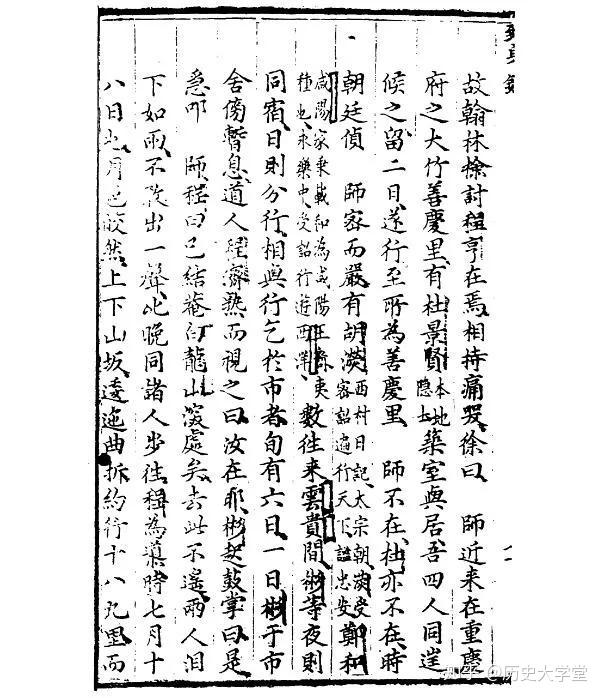 致身錄
故翰林檢討程亨在焉相持痛哭徐曰 師近来在重慶
府之大竹善慶里有杜景賢本地隱士築室與居吾四人同
候之留二日遂行至所為善慶里 師不在杜亦不在時
朝廷偵 師密而嚴有胡濙西村日記太宗朝濙受密詔遍行天下謚忠安鄭和
咸陽家乘載和為咸陽王裔夷種也永樂中受詔行遊西洋數往来雲貴間彬等夜則
同宿日則分行相與行乞於市者旬有六日一日彬于市
舍傍暫息道人程濟熟而視之曰汝在耶彬起鼓掌曰是
急叩 師程曰已結菴白龍山深處矣去此不遙兩人泪
下如雨不敢出一聲此晚同諸人步往稱為時七月十
八日也月色皎然上下山坂逶迤曲折約行十八九里而
知乎 @历史大学堂